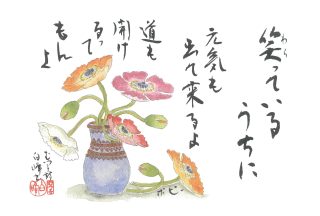 笑っている
うちに
元気も
出て来るよ
道も
開け
るって
もんよ
ポピー